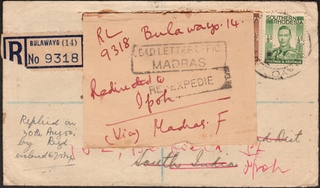 R
BULAWAYO (14)
No 9318
RL
9318 Bulawayo. 14.
DEAD LETTER OFFICE
MADRAS
RE-EXPEDIE
Redirected to
Ipoh
(Via) Madras. F
SOUTHERN
RHODESIA
Replied on
30th Aug
by Regd
South India
Ipoh